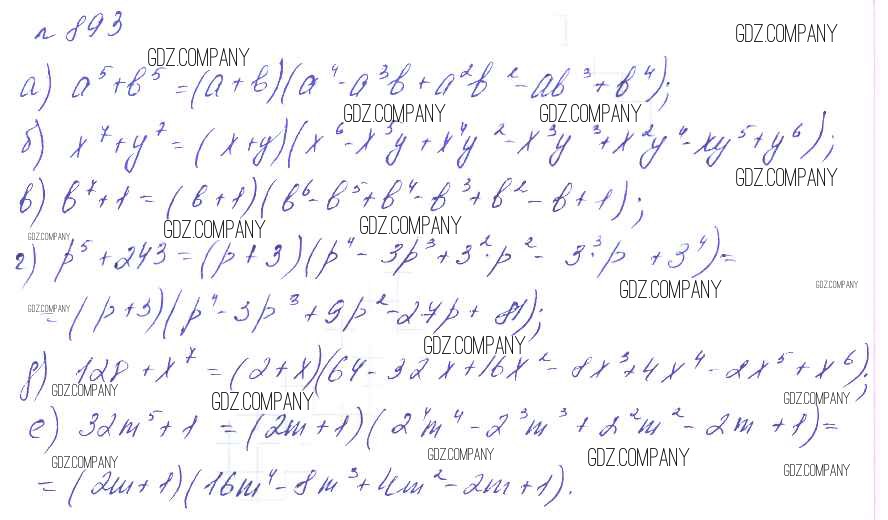 № 893
GDZ.COMPANY
GDZ.COMPANY
а) a⁵+b⁵=(a+b)(a⁴-a³b+a²b²-ab³+b⁴);
GDZ.COMPANY GDZ.COMPANY
б) x⁷+y⁷=(x+y)(x⁶-x⁵y+x⁴y²-x³y³+x²y⁴-xy⁵+y⁶);
GDZ.COMPANY
в) b⁷+1=(b+1)(b⁶-b⁵+b⁴-b³+b²-b+1);
GDZ.COMPANY GDZ.COMPANY
GDZ.COMPANY
г) p⁵+243=(p+3)(p⁴-3p³+3²·p²-3³·p+3⁴)=
GDZ.COMPANY GDZ.COMPANY
GDZ.COMPANY
=(p+3)(p⁴-3p³+9p²-27p+81);
GDZ.COMPANY
д) 128+x⁷=(2+x)(64-32x+16x²-8x³+4x⁴-2x⁵+x⁶);
GDZ.COMPANY GDZ.COMPANY GDZ.COMPANY
е) 32m⁵+1=(2m+1)(2⁴m⁴-2³m³+2²m²-2m+1)=
GDZ.COMPANY GDZ.COMPANY GDZ.COMPANY GDZ.COMPANY
=(2m+1)(16m⁴-8m³+4m²-2m+1).